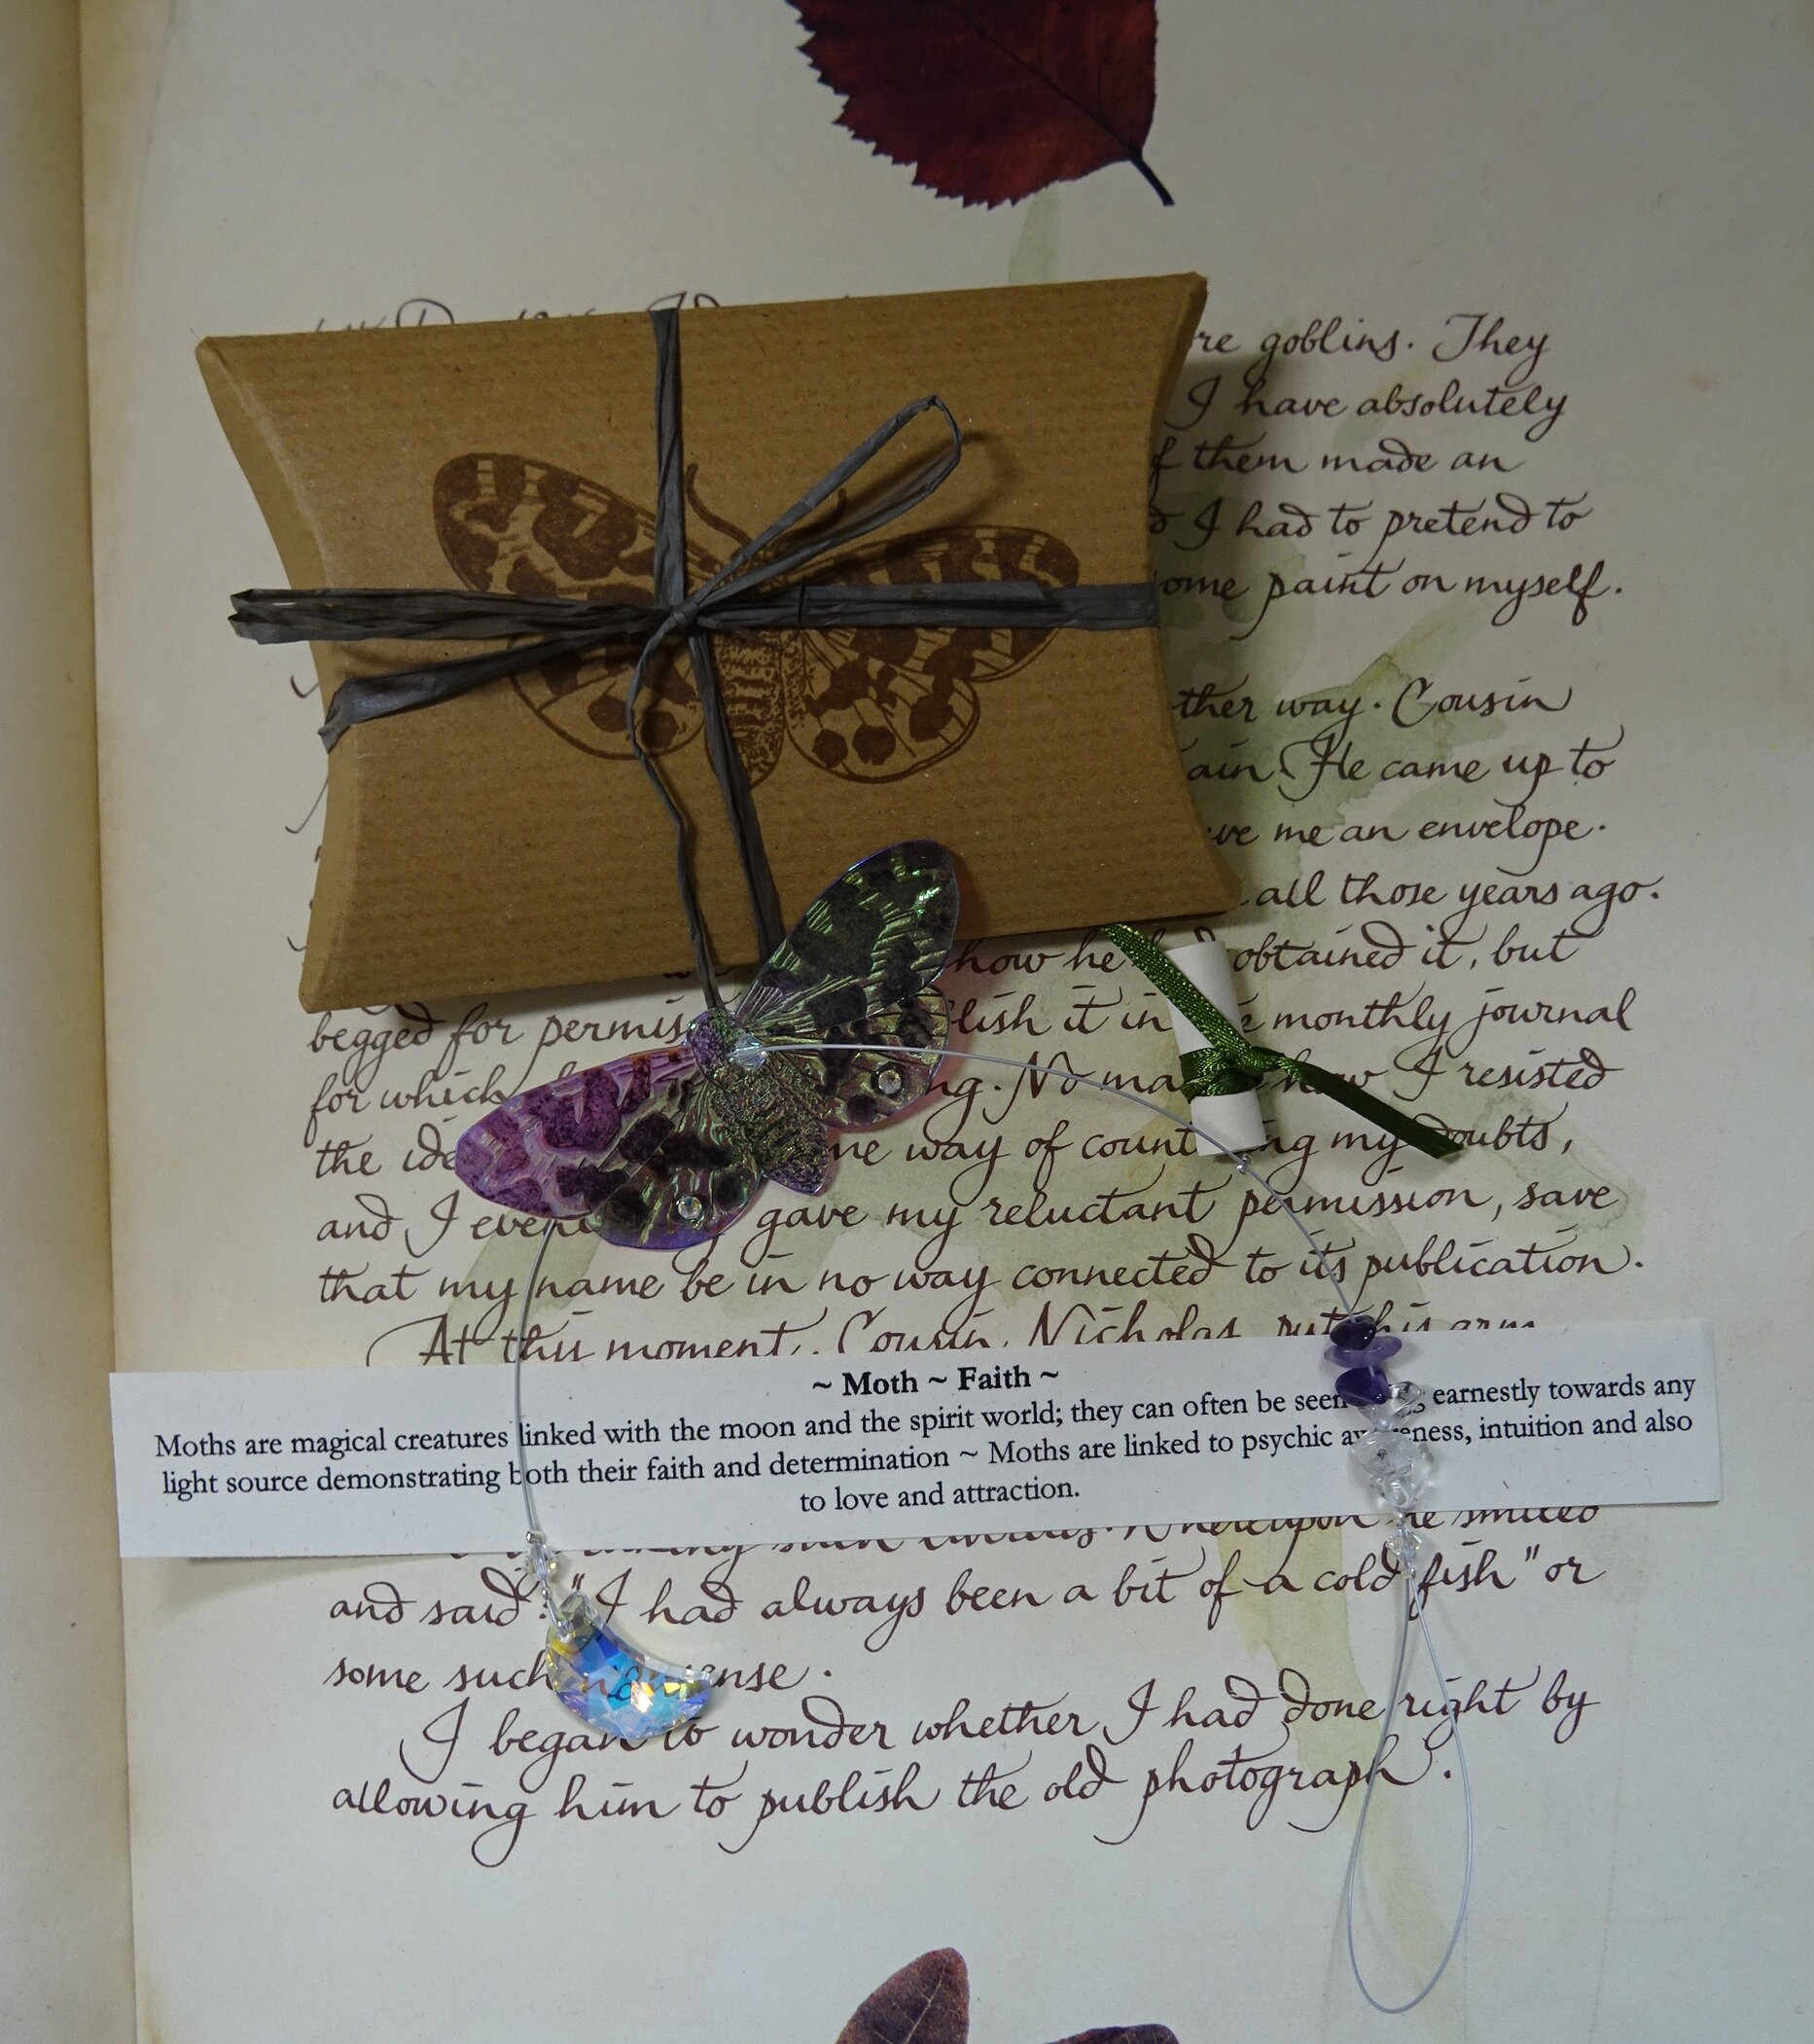 re goblins. They
I have absolutely
f them made an
I had to pretend to
ome paint on myself.
ther way. Cousin
ain. He came up to
ve me an envelope.
all those years ago.
how he obtained it, but
begged for permis lish it in monthly journal
for which ng. No ma how I resisted
the ide ne way of count ng my doubts,
and I even gave my reluctant permission, save
that my name be in no way connected to its publication.
At this moment, Cousin Nicholas put his arm
~ Moth ~ Faith ~
Moths are magical creatures linked with the moon and the spirit world; they can often be seen earnestly towards any
light source demonstrating both their faith and determination ~ Moths are linked to psychic awareness, intuition and also
to love and attraction.
he smiled
and said: "I had always been a bit of a cold fish" or
some such nonsense.
I began to wonder whether I had done right by
allowing him to publish the old photograph.